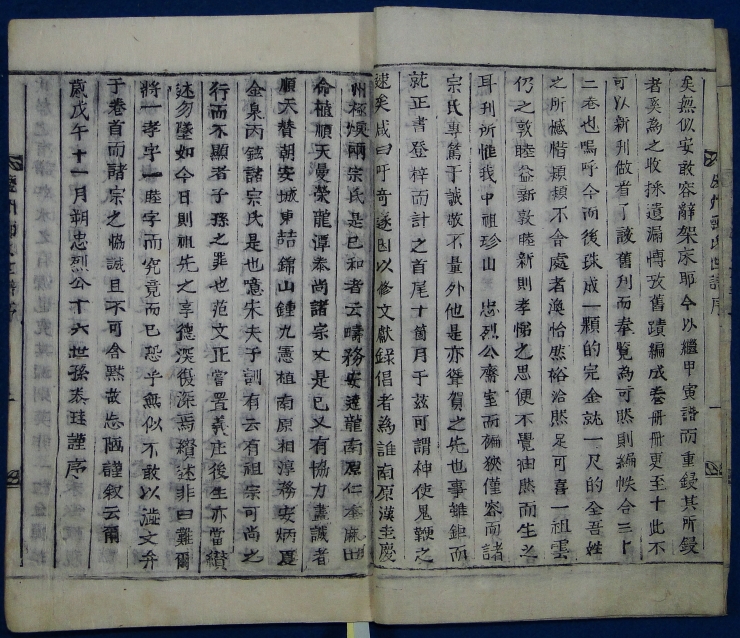 矣無似安敢容辭架床耶今以繼甲寅譜而重鋟其所鋟
者奚為之收採遺漏博攷舊蹟編成卷冊冊更至十此不
可以新刋做者了該舊刋而奉覽為可然則編帙合三十
二卷也嗚呼今而後珠成一顆的完金就一尺的全吾姓
之所憾惜類類不會處者渙怡然裕洽然足可喜一祖雲
仍之敦睦益新敦睦新則孝悌之思便不覺油然而生矣
耳刋所惟我中祖珍山 忠烈公齋室而稨狹僅容而諸
宗氏專篤于誠敬不量外他是亦聳賀之先也事雖鉅而
就正書登梓而計之首尾十箇月于玆可謂神使鬼鞭之
速矣咸曰吁奇遂因以修文獻錄倡者為誰南原漢圭慶
州極煥兩宗氏是已和者云疇務安達龍南原仁奉
命植順天曼榮龍潭泰尚諸宗丈是已又有協力盡誠者
順天贊朝安城東喆錦山鍾九憲植南原相淳務安炳夏
金泉丙鉉諸宗氏是也噫朱夫子訓有云有祖宗可尚之
行而不顯者子孫之罪也范文正嘗置義庄後生亦當纘
述勿墜如今日則祖先之享德深後深焉纘述非曰難爾
將一孝字一睦字而究竟而已恐乎無似不敢以澁文弁
于卷首而諸宗之恊誠且不可含黙故忘陋謹敘云爾
歲戊午十一月朔忠烈公十六世孫泰珪謹序